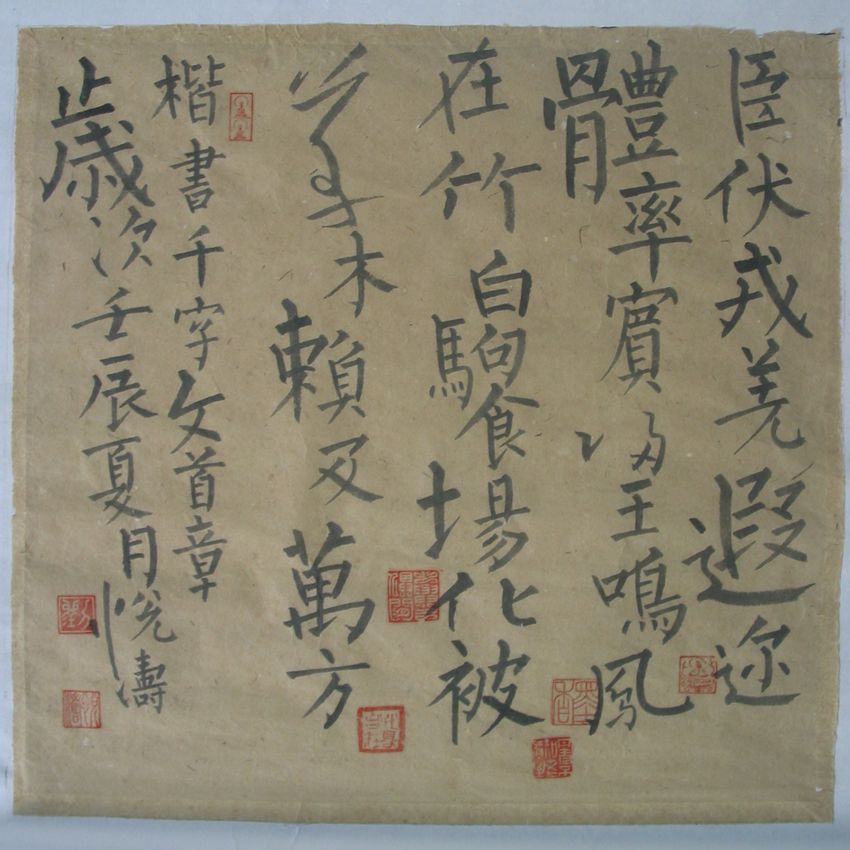 臣伏戎羌遐迩
體率賓归王鳴鳳
在竹白駒食場化被
草木賴及萬方
楷書千字文首章
止歲次壬辰夏月悅濤